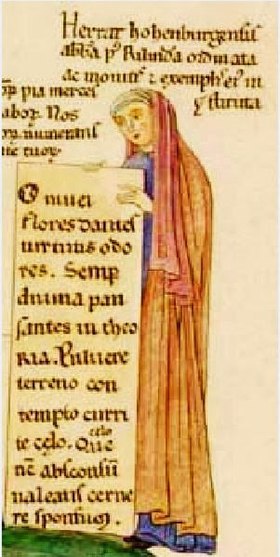 Herrat hohenburgensis
abba p9 Rilinda ordinata
ac monitis ⁊ exemplis ei9 in
stituta
pia merces
labor. Nos
numerans
O nivei
flores dantes
virtutis odo
res. Semp
divina pau
santes in theo
ria. Pulvere
terreno con
tempto curri
te celo. Que
celo
nc absconsū
valeatis cerne
re sponsum.